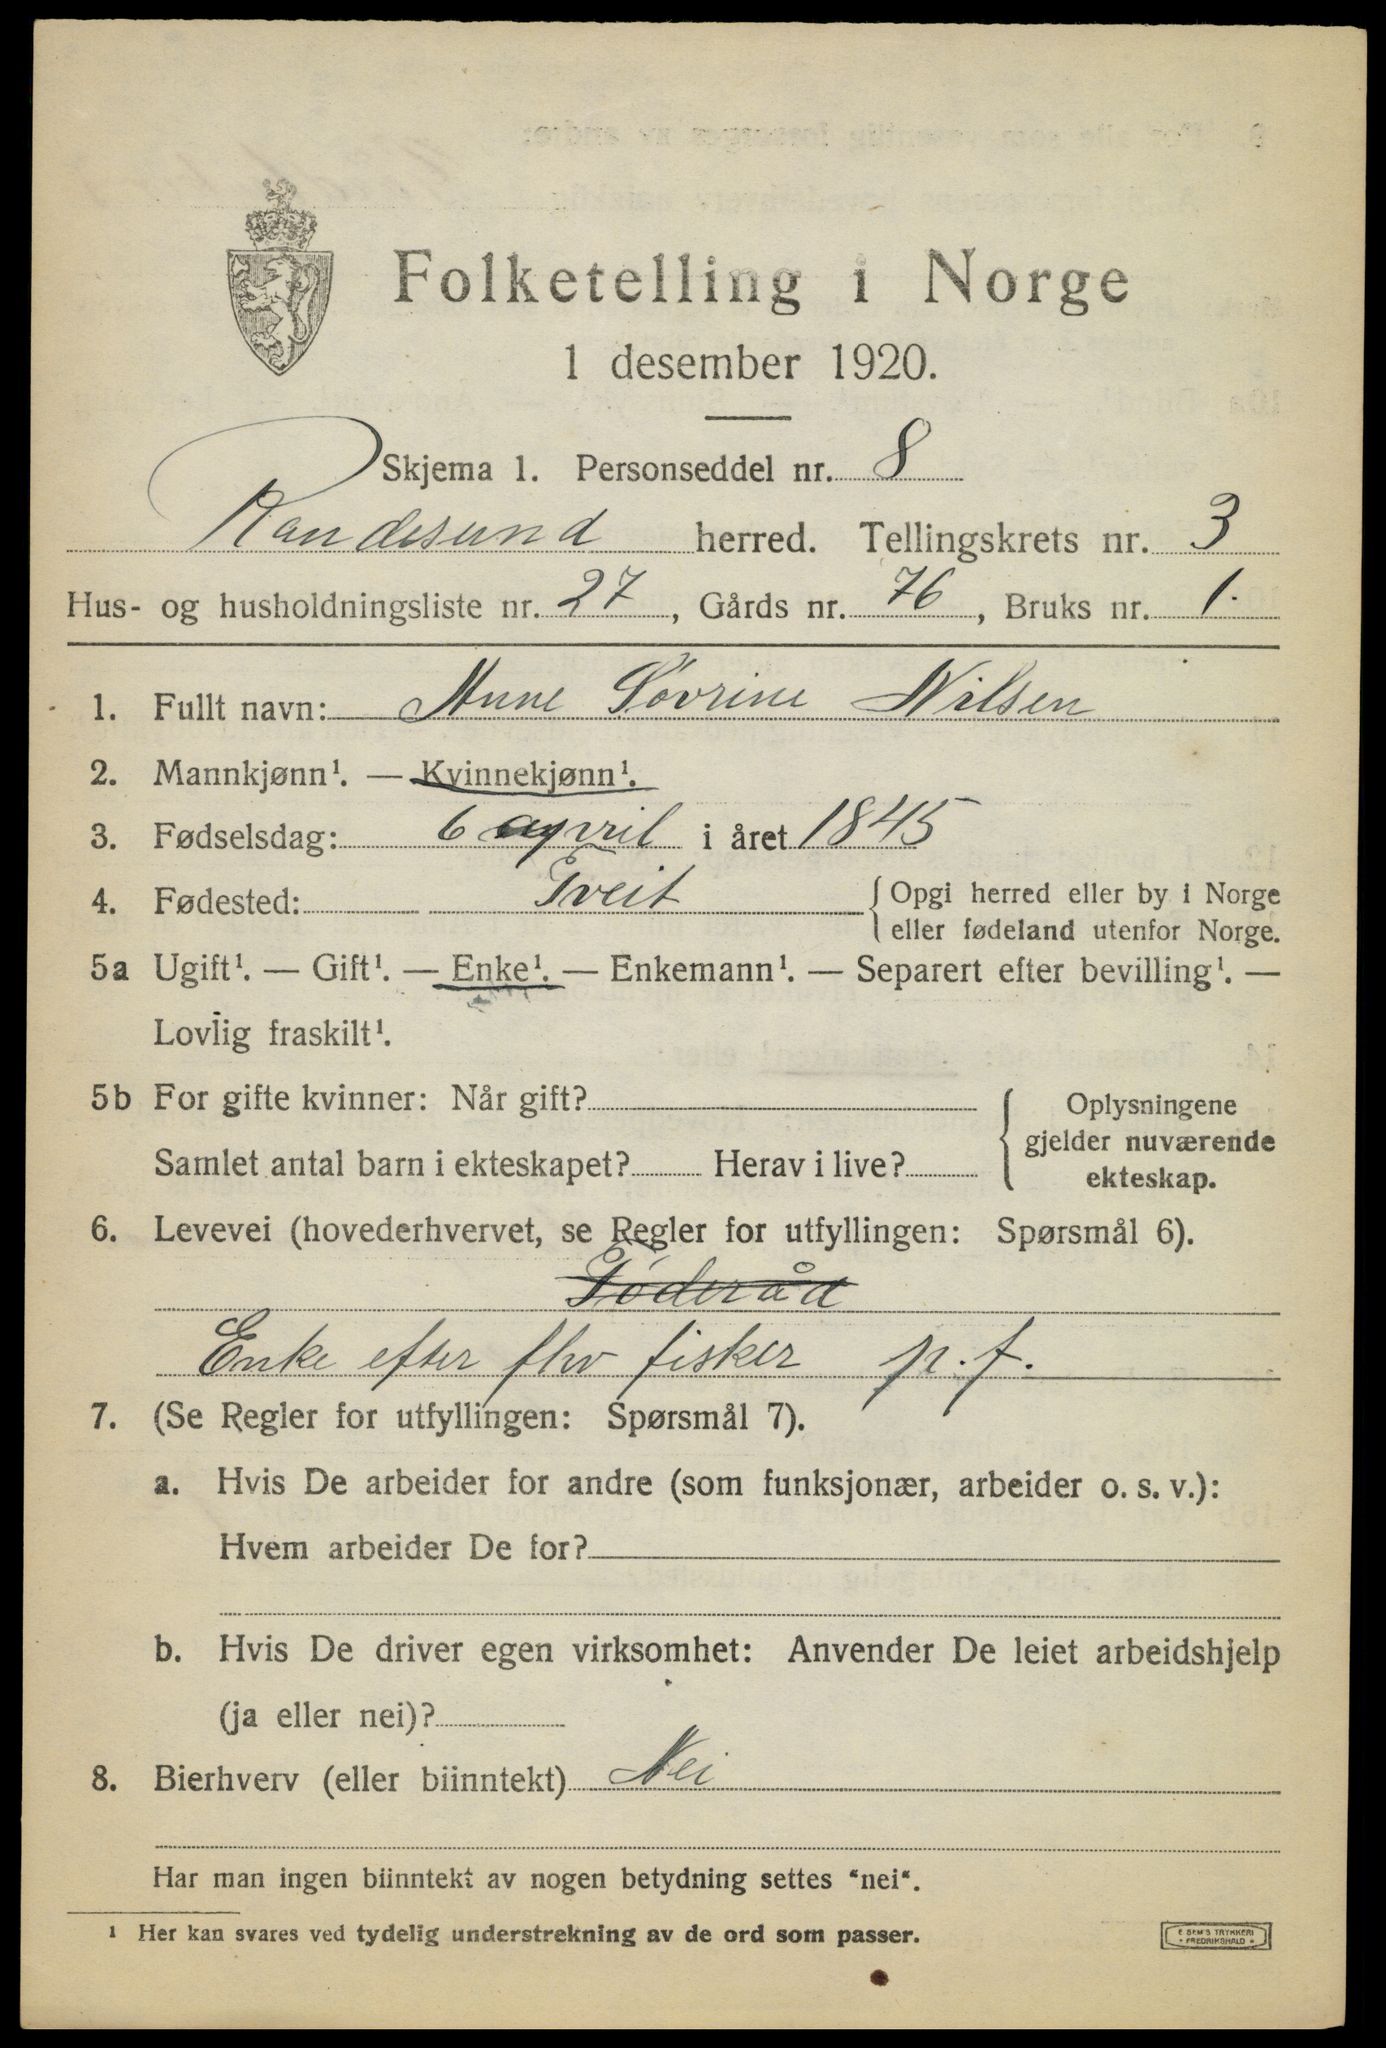 Folketelling i Norge
1 desember 1920.
Skjema 1. Personseddel nr. 8
Randesund herred. Tellingskrets nr. 3
Hus- og husholdningsliste nr. 27, Gårds nr. 76, Bruks nr. 1.
1. Fullt navn: Anne Sovrine Nilsen
2. Mannkjønn¹. — Kvinnekjønn¹.
3. Fødselsdag: 6 april i året 1845
4. Fødested: Tveit { Opgi herred eller by i Norge
eller fødeland utenfor Norge.
5a Ugift¹. — Gift¹. — Enke¹. — Enkemann¹. — Separert efter bevilling¹. —
Lovlig fraskilt¹.
5b For gifte kvinner: Når gift? { Oplysningene
gjelder nuværende
Samlet antal barn i ekteskapet? Herav i live? ekteskap.
6. Levevei (hovederhvervet, se Regler for utfyllingen: Spørsmål 6).
Føderåd
Enke efter fhv fisker p.f.
7. (Se Regler for utfyllingen: Spørsmål 7).
a. Hvis De arbeider for andre (som funksjonær, arbeider o. s. v.):
Hvem arbeider De for?
b. Hvis De driver egen virksomhet: Anvender De leiet arbeidshjelp
(ja eller nei)?
8. Bierhverv (eller biinntekt) Nei
Har man ingen biinntekt av nogen betydning settes "nei".
¹ Her kan svares ved tydelig understrekning av de ord som passer.
E SEM'S TRYKKERI
FREDRIKSHALD